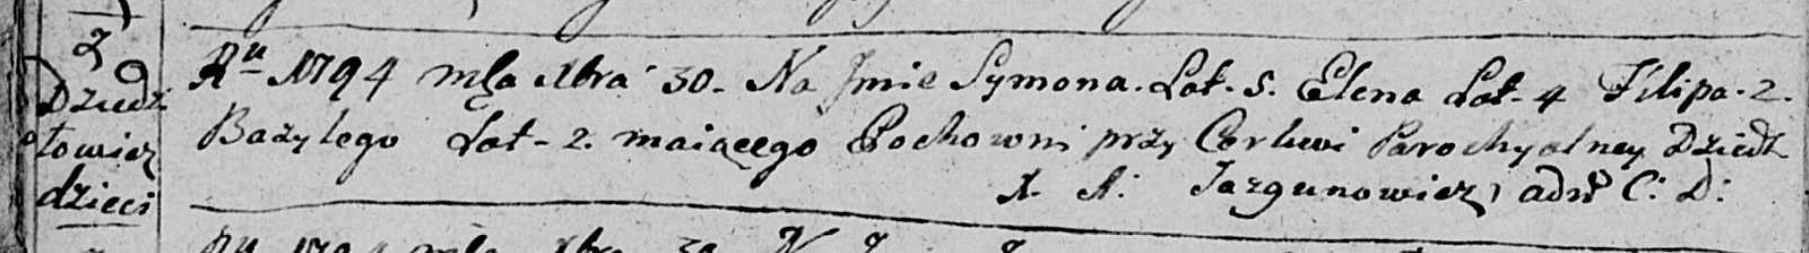 2
Dziedz
łowicz
dzieci
Ru 1794 mca Xbra 30. Na Jmie Symona. Lat. 5. Elena Lat. 4 Filipa. 2.
Bazylego Lat - 2. maiącego Pochowni przy Cerkwi Parochyalney Dziedł
X. A: Jazgunowicz adm C: D: